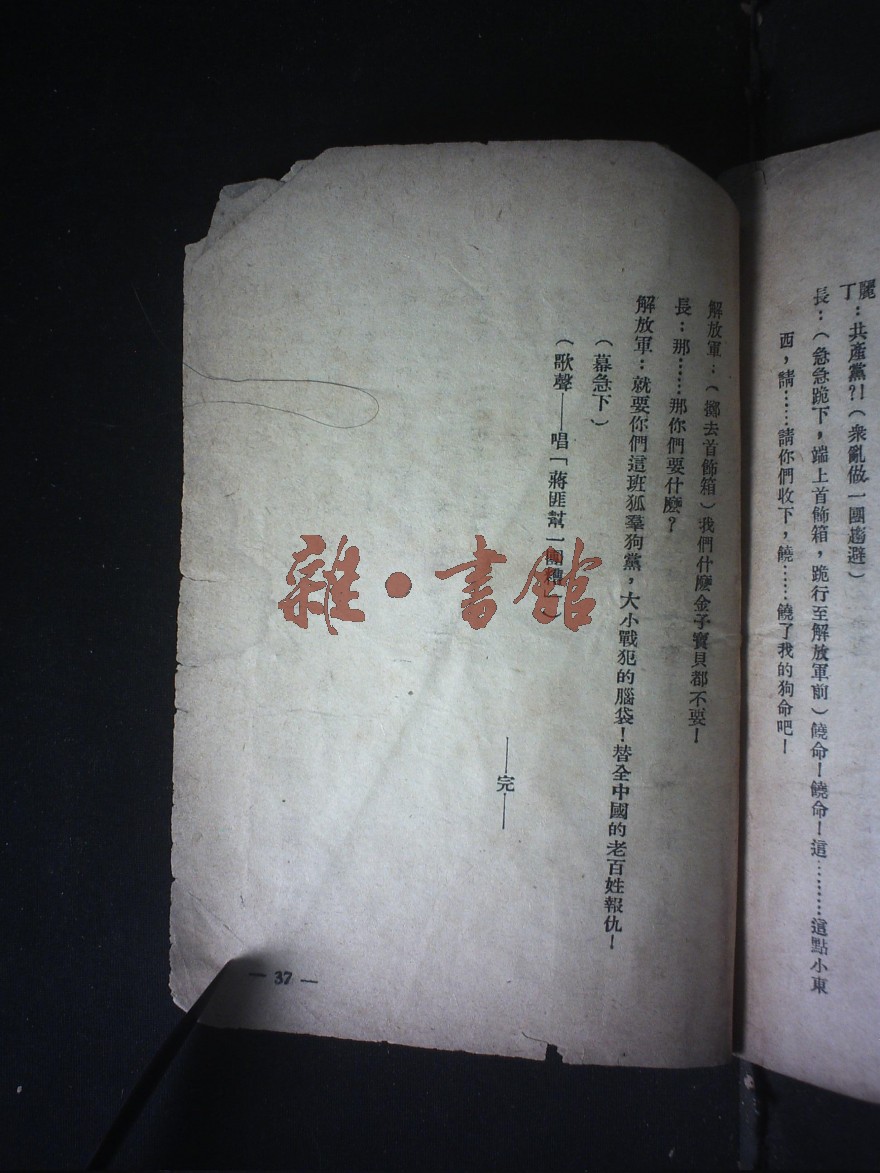 麗
丁：共產黨？！（衆亂做一團趨避）
長：（急急跪下，端上首飾箱，跪行至解放軍前）饒命！饒命！這………這點小東
西，請……請你們收下，饒……饒了我的狗命吧！
解放軍：（擲去首飾箱）我們什麽金子寶貝都不要！
長：那……那你們要什麽？
解放軍：就要你們這班狐羣狗黨，大小戰犯的腦袋！替全中國的老百姓報仇！
（幕急下）
（歌聲——唱「蔣匪幫一團糟」）
——完——
— 37 —
雜·書館